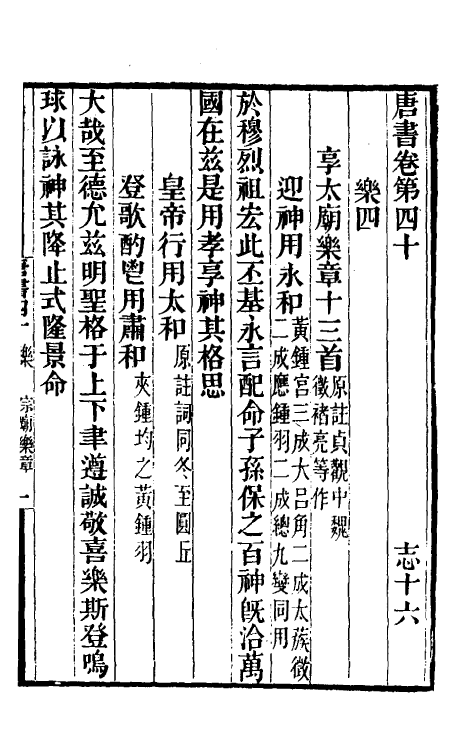 唐書卷第四十　志十六
樂四
享太廟樂章十三首原註貞觀中魏
徵褚亮等作
迎神用永和黃鍾宮三成大呂角二成太蔟徵
二成應鍾羽二成總九變同用
於穆烈祖宏此丕基永言配命子孫保之百神旣洽萬
國在兹是用孝享神其格思
皇帝行用太和原註詞同冬至圓丘
登歌酌鬯用肅和夾鍾均之黃鍾羽
大哉至德允兹明聖格于上下聿遵誠敬喜樂斯登鳴
球以詠神其降止式隆景命
唐書四十　樂　宗廟樂章　一